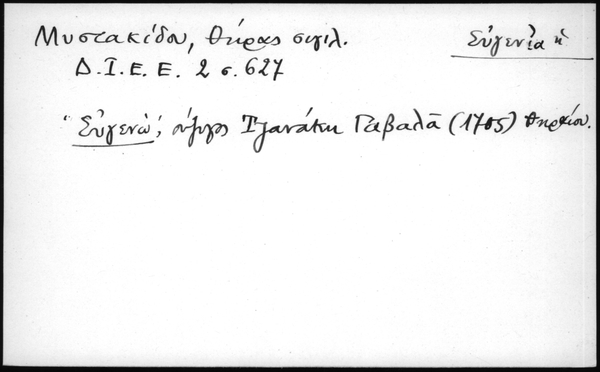 Μυστακίδου, Θήρας σιγιλ. Εὐγενία ἡ
Δ.Ι.Ε.Ε. 2 σ. 627
"Εὐγενώ", σύζυγος Τζανάκη Γαβαλᾶ (1705) Θηραίου.